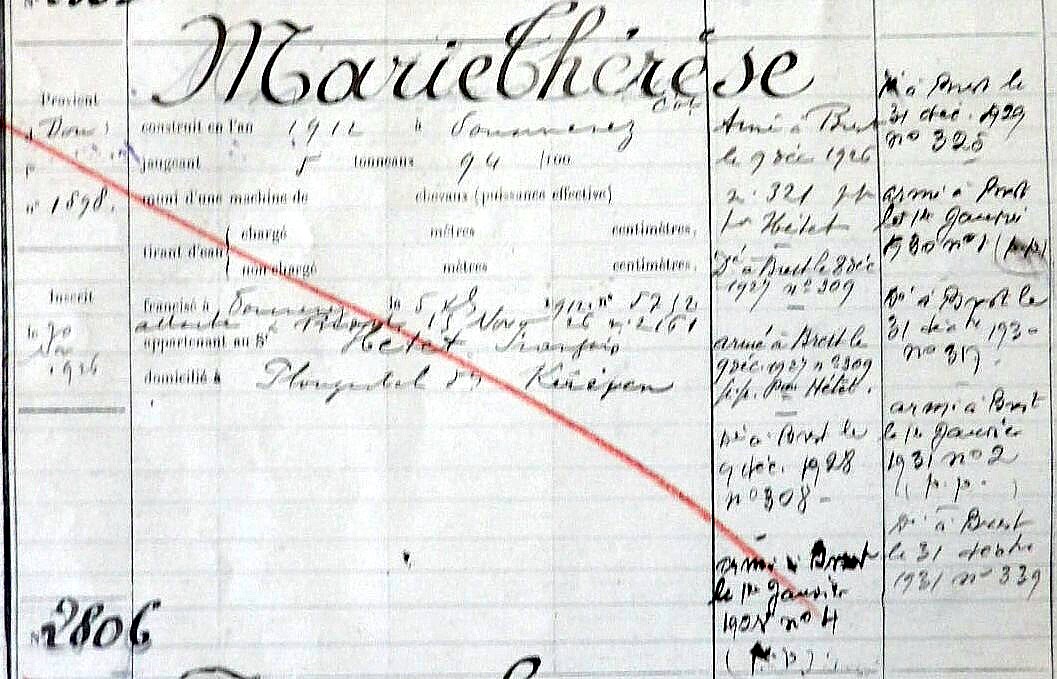 Marie Thérèse
Provient
( Dou )
n° 1898.
construit en l'an 1912 à
jaugeant 5 tonneaux 94 /100
muni d'une machine de chevaux (puissance effective)
tirant d'eau
chargé mètres centimètres.
non chargé mètres centimètres.
Inscrit
le 30
Nov
1926
francisé à le 1912 n° 5212
attache 15 Nov 26 n° 2161
appartenant au S^r Hétet François
domicilié à
N° 2806
Armé à Brest
le 9 déc 1926
n° 321 pp
Hétet
D^é à Brest le 8 déc
1927 n° 309
armé à Brest le
9 déc. 1927 n° 309
p.p. Hétet.
Dé à Brest le
9 déc. 1928
n° 308 -
armé à Brest
le 1er Janvier
n° 4
(p.p).
Dé à Brest le
31 déc. 1929
n° 325
armé à Brest
le 1er Janvier
1930 n° 1 (p.p)
Dé à Brest le
31 décbre 1930
n° 317.
armé à Brest
le 1er Janvier
1931 n° 2
(p.p.)
Dé à Brest
le 31 décbre
1931 n° 339